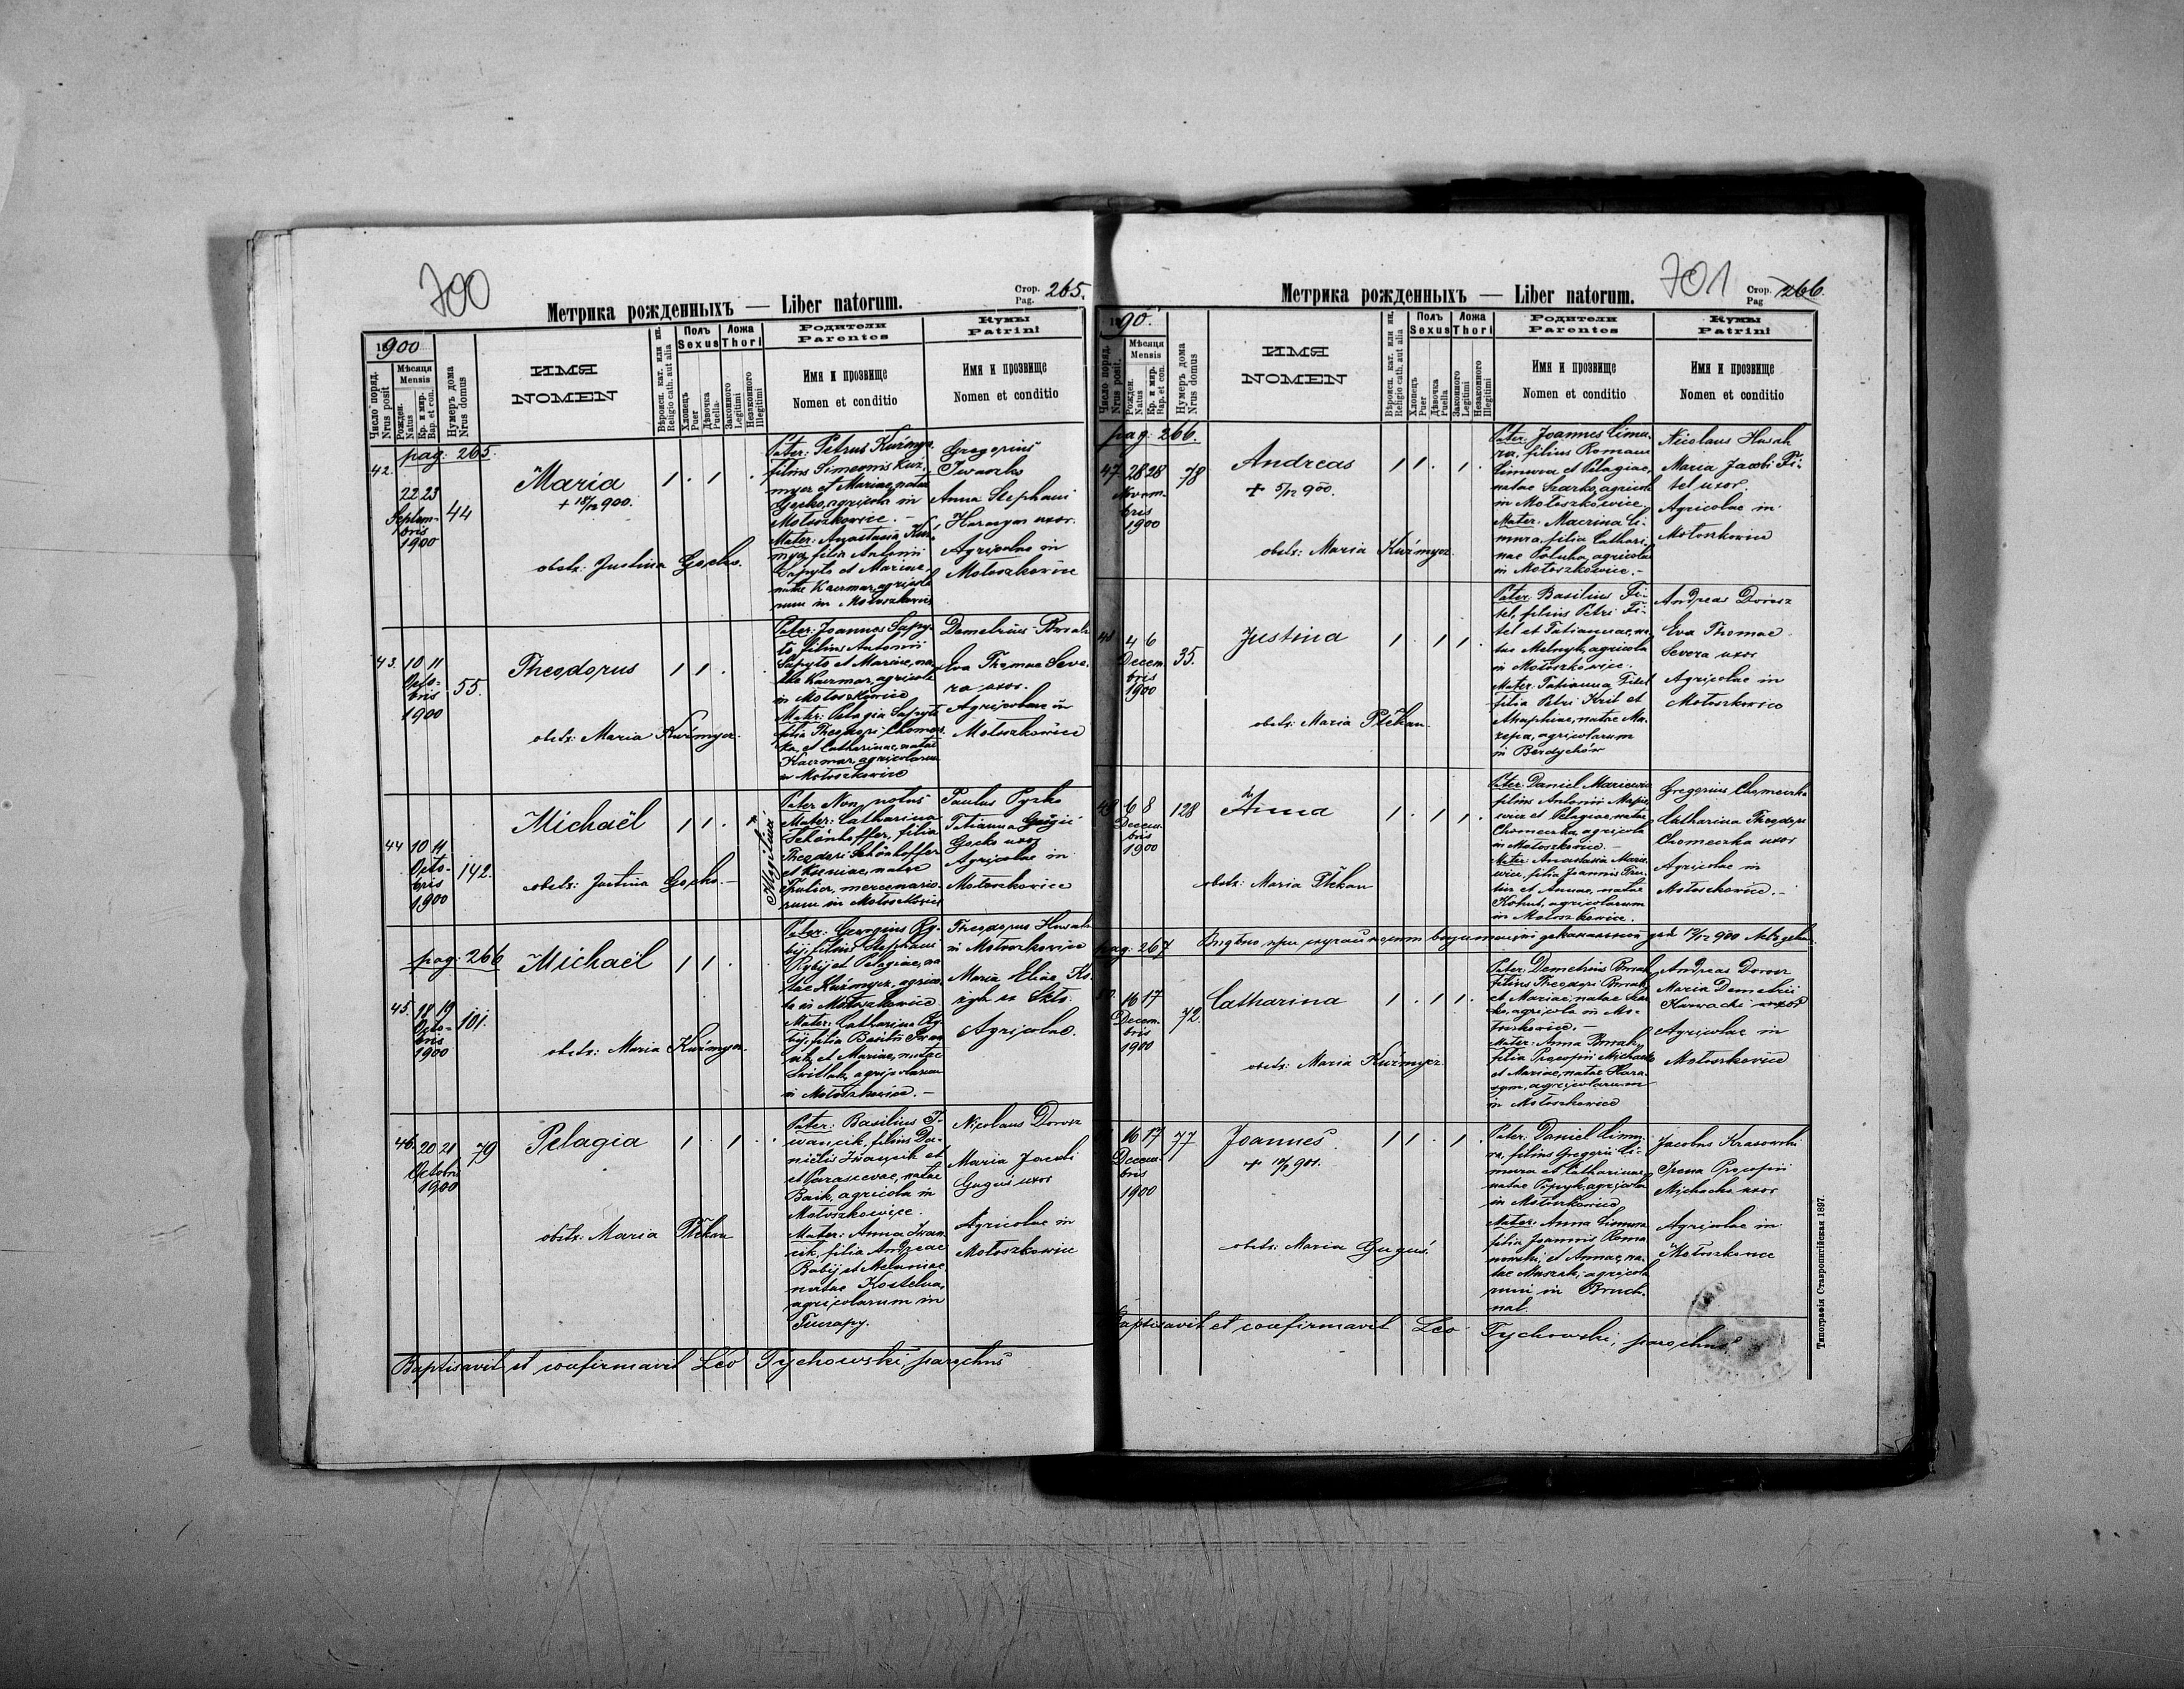 700
Метрика рожденныхъ — Liber natorum.
Стор.
Pag. 265.
1900
Число поряд.
Nrus posit
Мѣсяця
Mensis
Рожден.
Natus
Кр. и мир.
Bap. et con.
Нумеръ дома
Nrus domus
ИМЯ
NOMEN
Вѣроисп. кат. или ин.
Religio cath. aut alia
Полъ
Sexus
Хлопецъ
Puer
Дѣвочка
Puella
Ложа
Thori
Законного
Legitimi
Незаконного
Illegitimi
Родители
Parentes
Имя и прозвище
Nomen et conditio
Кумы
Patrini
Имя и прозвище
Nomen et conditio
pag: 265.
42.
22 23
Septem-
bris
1900
44
Maria
+ 18/12 900.
obstr: Justina Gocko.
Pater: Petrus Kuźmycz
filius Simeonis Kuź-
mycz et Mariae, natae
Gocko, agricola in
Mołoszkowice. -
Mater: Anastasia Kuź-
mycz, filia Antonii
Sapyto et Mariae,
natae Kaczmar, agricola-
rum in Mołoszkowice
Gregorius
Iwaszko
Anna Stephani
Harasym uxor.
Agricolae in
Mołoszkowice
43.
10 11
Octo-
bris
1900
55.
Theodorus
obstr: Maria Kuźmycz.
Pater: Joannes Sapy-
to, filius Antonii
Sapyto et Mariae, na-
tae Kaczmar, agricola
in Mołoszkowice
Mater: Pelagia Sapyto
filia Theodori Chomecz-
ka, et Catharinae, natae
Kaczmar, agricolarum
in Mołoszkowice
Demetrius Brrak
Eva Thomae Seve-
ra uxor.
Agricolae in
Mołoszkowice
44
10 11
Octo-
bris
1900
142.
Michaël
obstr: Justina Gocko. -
Illegitimi
Pater Non notus
Mater: Catharina
Schönhoffer, filia
Theodori Schönhoffer
et Kseniae, natae
mercenario-
rum in Mołoszkowice
Paulus Pyzko
Tatianna
Gocko uxor
Agricolae in
Mołoszkowice
pag: 266
45.
18 19
Octo-
bris
1900
101.
Michaël
obstr: Maria Kuźmycz.
Pater: Georgius Ry-
bij, filius Stephani
Rybij et Pelagiae, na-
tae Kuźmycz, agrico-
la in Mołoszkowice
Mater: Catharina Ry-
bij, filia Basilii
et Mariae, natae
agricolarum
in Mołoszkowice. -
Theodorus Husak
in Mołoszkowice
Maria Eliae
ex Skło.
Agricolae.
46.
20 21
Octobris
1900
79
Pelagia
obstr: Maria Ptekan
Pater: Basilius I-
wancik, filius Da-
nielis Iwancik et
et Parascevae, natae
Baik, agricola in
Mołoszkowice.
Mater: Anna Iwan-
cik, filia Andreae
Babij et Melaniae
natae Kostelna,
agricolarum in
Tuczapy.
Nicolaus Dorosz
Maria Jacobi
Guguś uxor
Agricolae in
Mołoszkowice
Baptisavit et confirmavit Leo Tychowski, parochus
701
Метрика рожденныхъ — Liber natorum.
Стор.
Pag 266.
1890.
Число поряд.
Nrus posit.
Мѣсяця
Mensis
Рожден.
Natus
Кр. и мир.
Bap. et con.
Нумеръ дома
Nrus domus
ИМЯ
NOMEN
Вѣроисп. кат. или ин.
Religio cath. aut alia
Полъ
Sexus
Хлопецъ
Puer
Дѣвочка
Puella
Ложа
Thori
Законного
Legitimi
Незаконного
Illegitimi
Родители
Parentes
Имя и прозвище
Nomen et conditio
Кумы
Patrini
Имя и прозвище
Nomen et conditio
pag: 266.
47
28 28
Novem-
bris
1900
78
Andreas
+ 5/12 900.
obstr: Maria Kuźmycz.
Pater: Joannes Cimu-
ra, filius Romani
Cimura et Pelagiae,
natae Szarko, agricola
in Mołoszkowice,
Mater: Macrina Ci-
mura, filia Cathari-
nae Połuha, agricolae
in Mołoszkowice. -
Nicolaus Husak
Maria Jacobi Fi-
tel uxor,
Agricolae in
Mołoszkowice
48
4 6
Decem-
bris
1900
35.
Justina
obstr: Maria Ptekan.
Pater: Basilius Fi-
tel, filius Petri Fi-
tel et Tatiannae, na-
tae Melnyk, agricola
in Mołoszkowice.
Mater: Tatianna Fitel
filia Petri Krit et
Ahaphiae, natae Ma-
zepa, agricolarum
in Berdychów
Andreas Dorosz
Eva Thomae
Severa uxor
Agricolae in
Mołoszkowice
49
6 8
Decem-
bris
1900
128
Anna
obstr: Maria Ptekan
Pater: Daniel
filius Antonii
et Pelagiae, natae
Chomeczka, agricola
in Mołoszkowice. -
Mater: Anastasia
filia Joannis
et Annae, natae
Kohut, agricolarum
in Mołoszkowice.
Gregorius Chomeczka
Catharina Theodori
Chomeczka uxor
Agricolae in
Mołoszkowice. -
pag: 267
Видѣно при деканальной дня 17/12 900
50.
16 17
Decem-
bris
1900
72.
Catharina
obstr: Maria Kuźmycz
Pater: Demetrius Brrak
filius Theodori Brrak
et Mariae, natae
agricola in Mo-
łoszkowice. -
Mater: Anna Brrak,
filia Procopii Michacko
et Mariae, natae Hara-
sym, agricolarum
in Mołoszkowice
Andreas Dorosz
Maria Demetrii
Karwacki uxor
Agricolae in
Mołoszkowice
16 17
Decem-
bris
1900
77
Joannes
obstr: Maria Guguś.
Pater: Daniel Cimu-
ra, filius Gregorii Ci-
mura et Catharinae,
natae Pypyk, agricola
in Mołoszkowice
Mater: Anna Cimura
filia Joannis Roma-
nowski, et Annae, na-
tae agricola-
rum in Bruch-
nal.
Jacobus Krasowski
Irena Procopii
Michacko uxor
Agricolae in
Mołoszkowice
Baptisavit et confirmavit Leo Tychowski, parochus
Типографія Ставропигійская 1897.